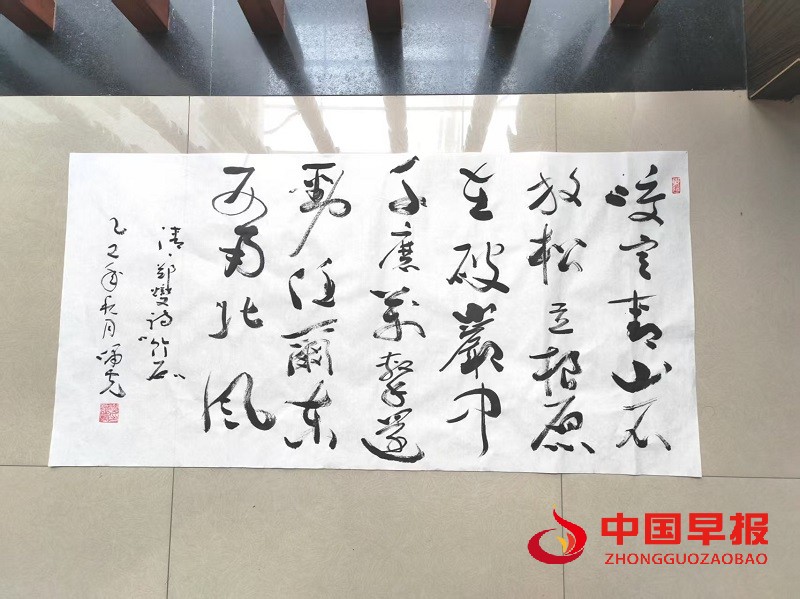 咬定青山不
放松立根原
在破巖中
千磨萬擊還
勁任爾东
西南北风
清·郑燮诗"竹石"
乙巳年秋月
中国早报
ZHONGGUOZAOBAO